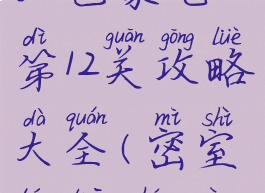 dì guān gōng lüè
第12关攻略
dà quán mì shì
大全(密室